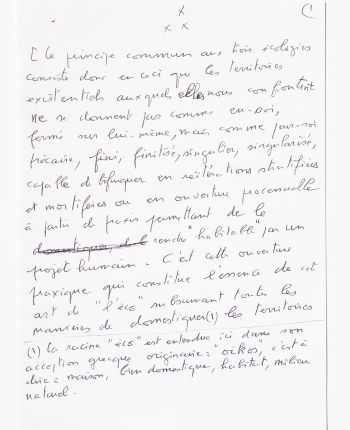 x
x x
(1
[ le principe commun aux trois écologies
consiste donc en ceci que les territoires
existentiels auxquels elles nous confrontent
ne se donnent pas comme en-soi,
fermé sur lui-même, mais comme pour-soi
précaire, fini, finitisé, singulier, singularisé,
capable de bifurquer en réitérations stratifiées
et mortifères ou en ouverture processuelle
à partir de praxis permettant de le
rendre "habitable" par un
projet humain. C'est cette ouverture
praxique qui constitue l'essence de cet
art de "l'éco" subsumant toutes les
manières de domestiquer (1) les territoires
(1) la racine "éco" est entendue ici dans son
acception grecque originaire : "oïkos", c'est à
dire : maison, bien domestique, habitat, milieu
naturel.